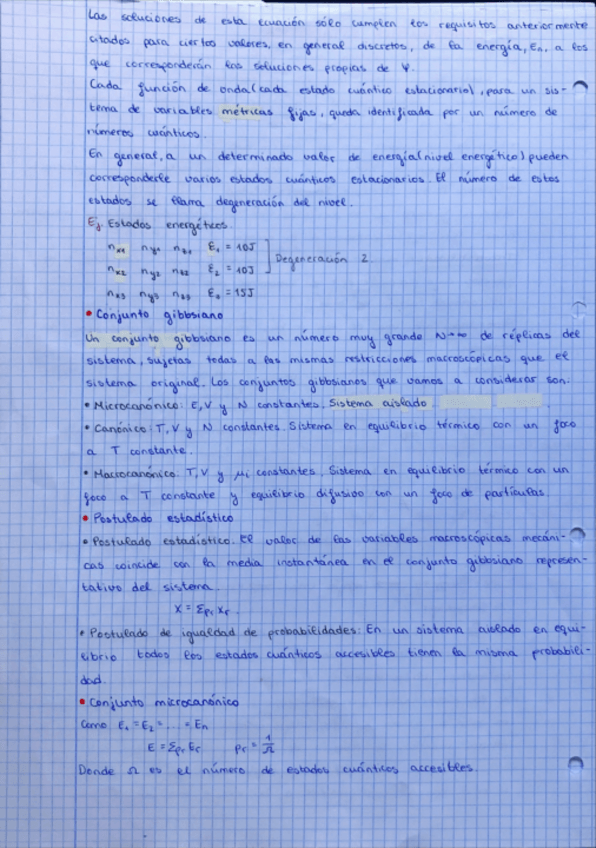 Las soluciones de esta ecuación sólo cumplen los requisitos anteriormente
citados para ciertos valores, en general discretos, de la energía, En, a los
que corresponderán las soluciones propias de Ψ.
Cada función de onda (cada estado cuántico estacionario), para un sis-
tema de variables métricas fijas, queda identificada por un número de
números cuánticos.
En general, a un determinado valor de energía (nivel energético) pueden
corresponderle varios estados cuánticos estacionarios. El número de estos
estados se llama degeneración del nivel.
Ej. Estados energéticos.
nx1 ny1 nz1 E1 = 10J
nx2 ny2 nz2 E2 = 10J ] Degeneración 2.
nx3 ny3 nz3 E3 = 15J
• Conjunto gibbsiano
Un conjunto gibbsiano es un número muy grande N→∞ de réplicas del
sistema, sujetas todas a las mismas restricciones macroscópicas que el
sistema original. Los conjuntos gibbsianos que vamos a considerar son:
• Microcanónico: E, V y N constantes. Sistema aislado.
• Canónico: T, V y N constantes. Sistema en equilibrio térmico con un foco
a T constante.
• Macrocanónico. T, V y μi constantes. Sistema en equilibrio térmico con un
foco a T constante y equilibrio difusivo con un foco de partículas.
• Postulado estadístico
• Postulado estadístico. El valor de las variables macroscópicas mecáni-
cas coincide con la media instantánea en el conjunto gibbsiano represen-
tativo del sistema.
X = Σpr xr.
• Postulado de igualdad de probabilidades: En un sistema aislado en equi-
librio todos los estados cuánticos accesibles tienen la misma probabili-
dad.
• Conjunto microcanónico
Como E1 = E2 = ... = En
E = Σpr Er pr = 1/Ω
Donde Ω es el número de estados cuánticos accesibles.